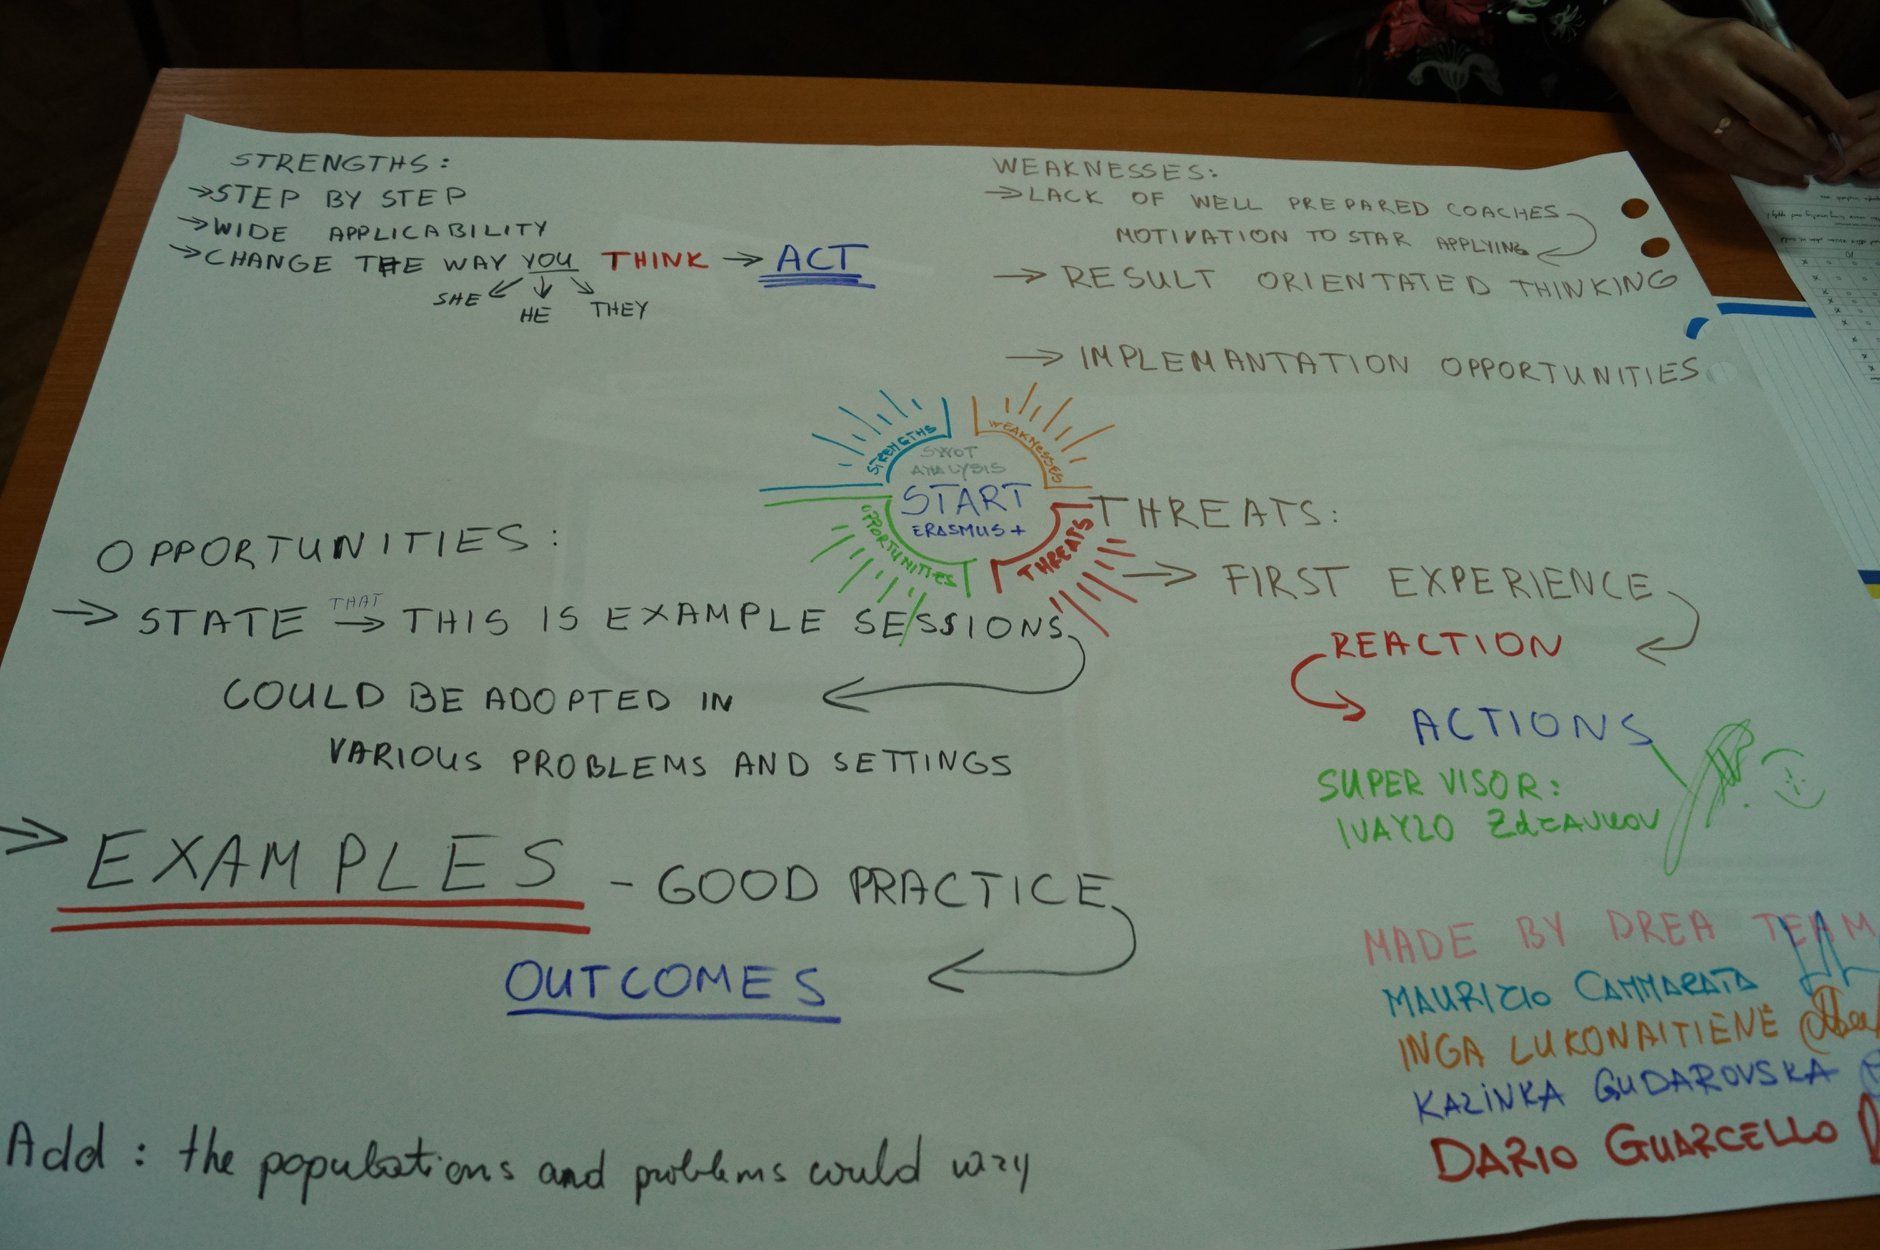 STRENGTHS:
→STEP BY STEP
→WIDE APPLICABILITY
→CHANGE THE WAY YOU THINK → ACT
SHE HE THEY
WEAKNESSES:
→LACK OF WELL PREPARED COACHES
MOTIVATION TO STAR APPLYING
→ RESULT ORIENTATED THINKING
→ IMPLEMANTATION OPPORTUNITIES
STRENGTHS
WEAKNESSES
SWOT
ANALYSIS
START
ERASMUS+
OPPORTUNITIES
THREATS
OPPORTUNITIES:
→ STATE THAT → THIS IS EXAMPLE SESSIONS
COULD BE ADOPTED IN
VARIOUS PROBLEMS AND SETTINGS
→ EXAMPLES - GOOD PRACTICE
OUTCOMES
THREATS:
→ FIRST EXPERIENCE
REACTION
ACTIONS
SUPER VISOR:
IVAYLO ZdRAVKOV
MADE BY DREA TEAM
MAURIZIO CAMMARATA
INGA LUKONAITIENĖ
KALINKA GUDAROVSKA
DARIO GUARCELLO
Add: the populations and problems could vary